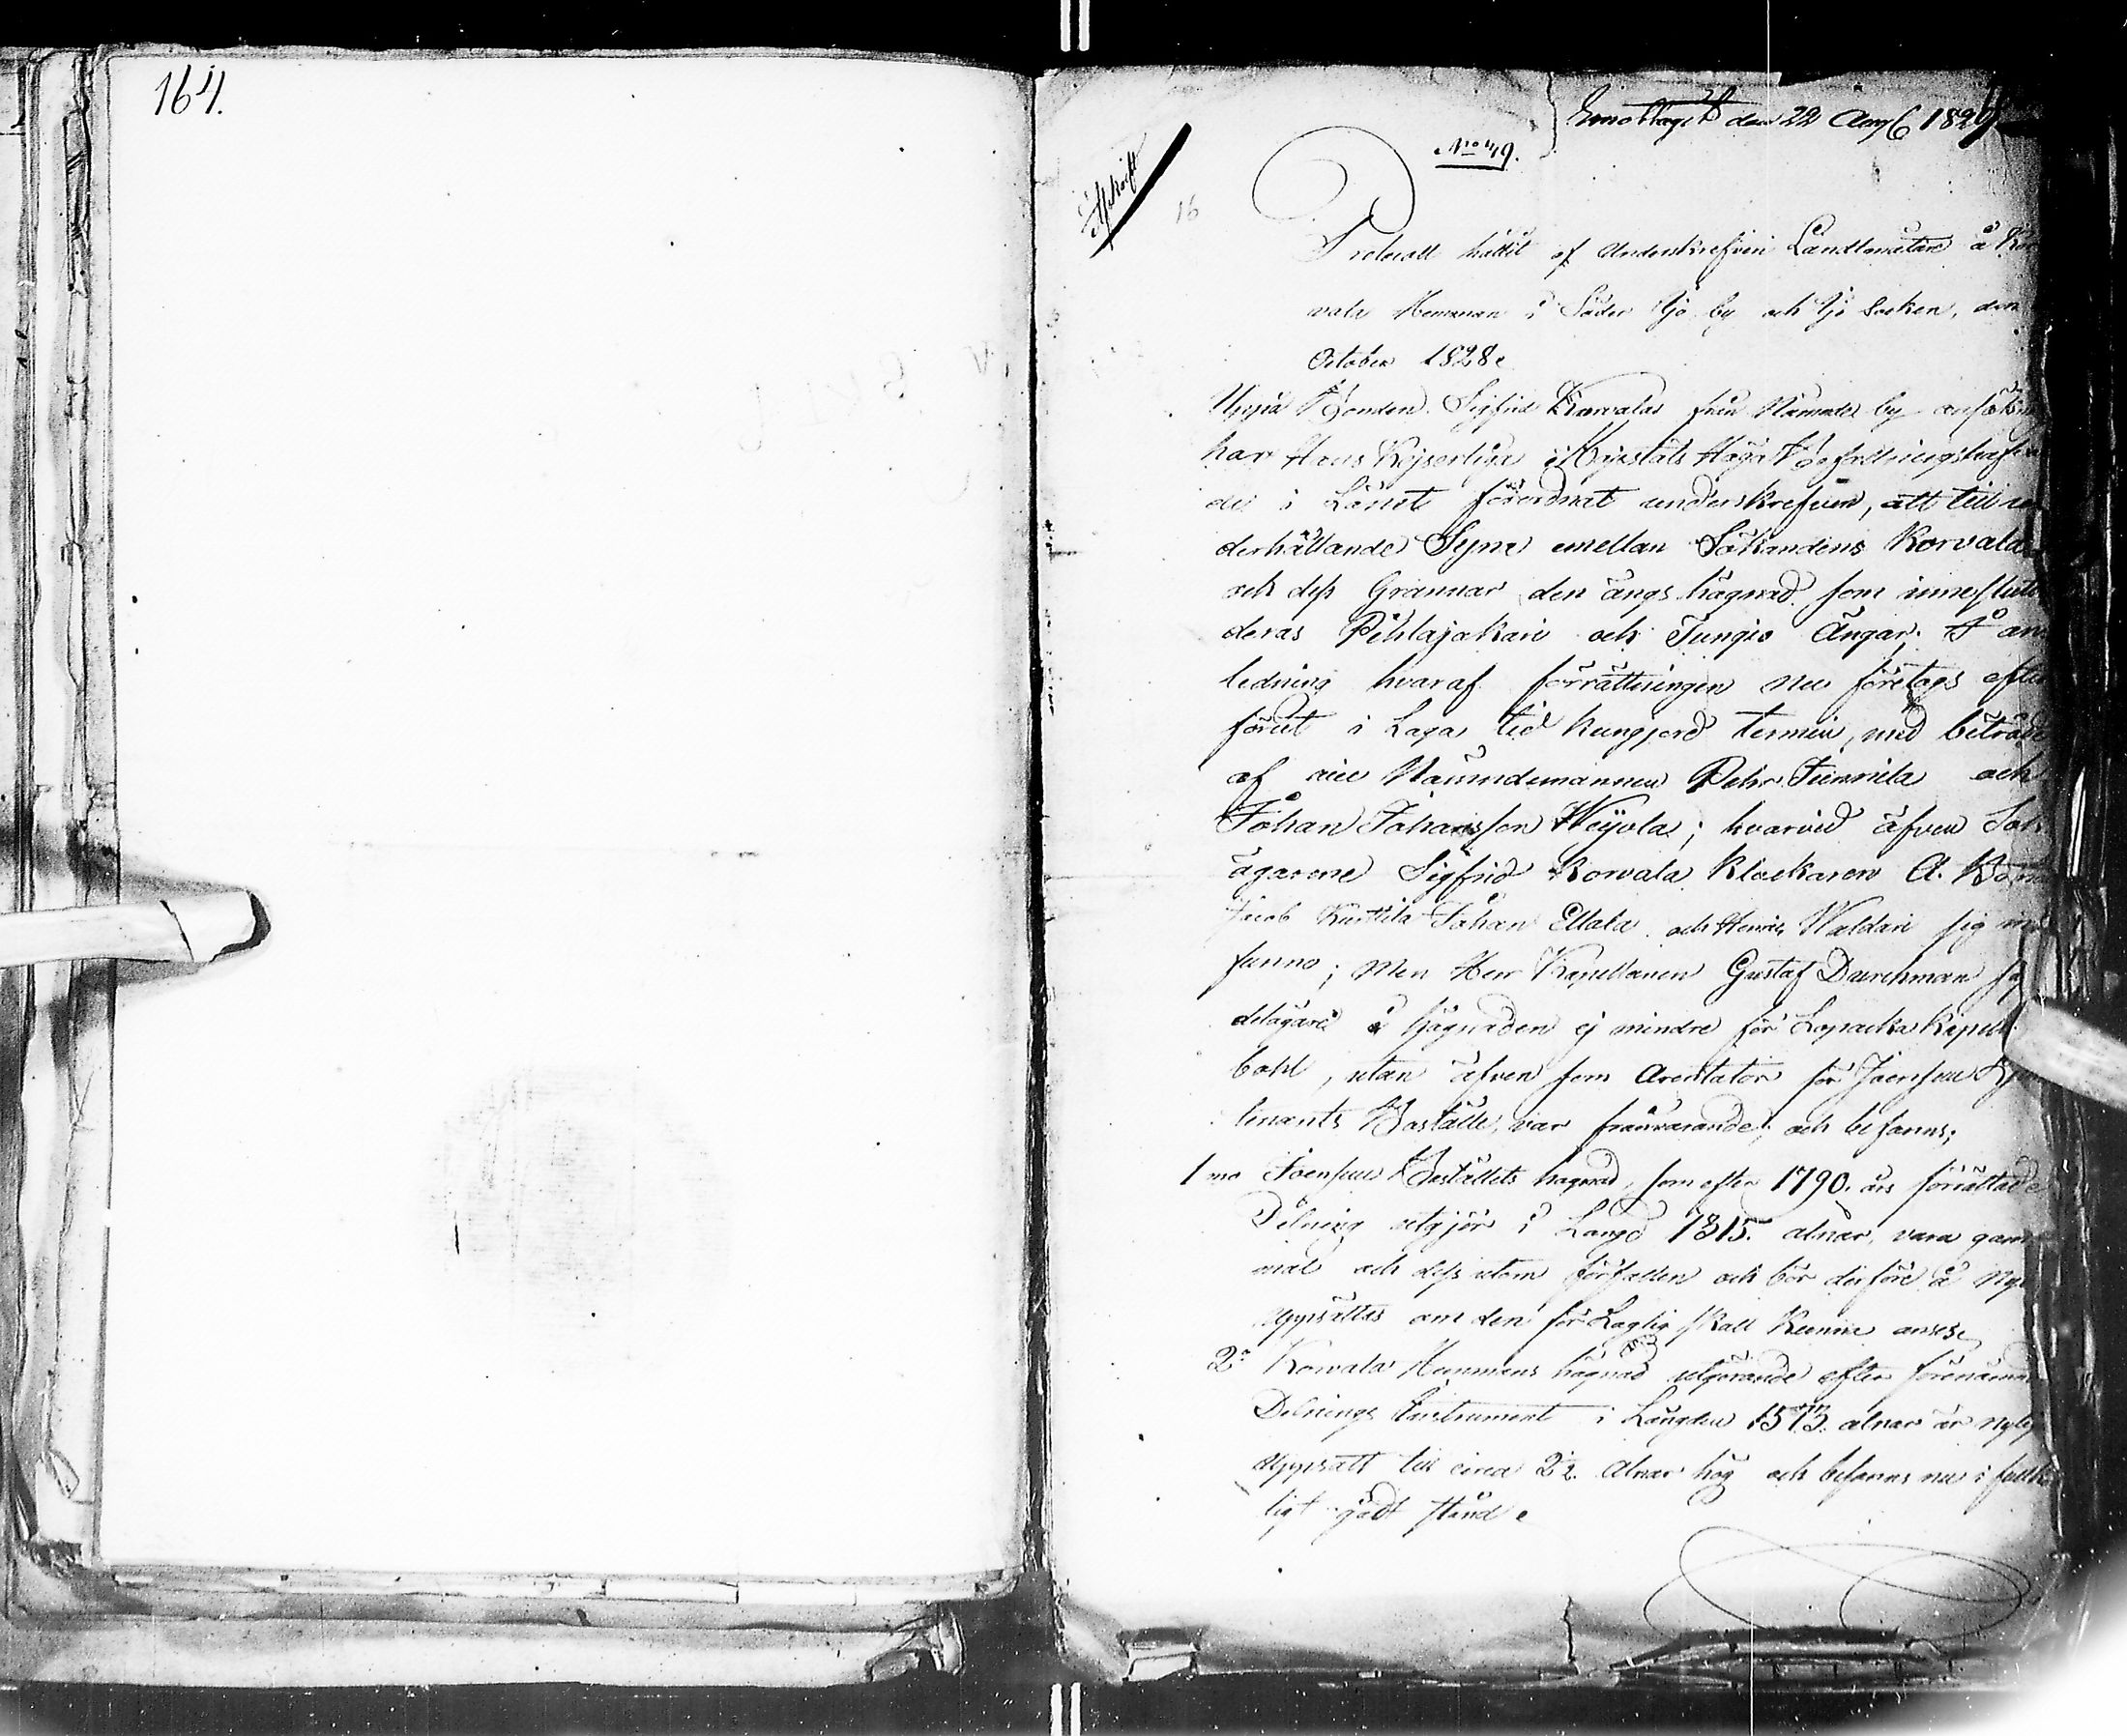 164.
Emottagit den 22 Aug 1829
No 49.
Afskrift
16
Protocoll hållit af Underskrefven Landtmätare å Kor
vala Hemman i Söder Ijo by och Ijo Socken, den
October 1828.
Uppå Bonden Sigfrid Korvalas från Nämnde by ansökni
har Hans Kejserliga Majestäts Höga Befallningshafvan
de i Länet förordnat underskrefven, att till un
derhållande Syna emellan Sökandens Korvala
och dess Grannar den ängs hägnad som innesluta
deras Pihlajakari och Tungio Ängar. I an
ledning hvaraf förrättningen nu företogs efter
förut i Laga tid kungjord termin, med biträde
af Nämndemannen Pehr och
Johan Johansson Weijola; hvarvid äfven Jord
ägarene Sigfrid Korvala Klockaren A.
Jacob Kurttila Johan Ellala och Henric Waldari sig in
funno; Men Herr Kapellanen Gustaf Durchman så
delägare i hägnaden ej mindre för Kapell
bohl, utan äfven som Arentator för Joensuu
tinants Boställe, var frånvarande; och befanns;
1mo Joensuu Boställets hagnad, som efter 1790. års förrättade
Delning utgjör i Langd 1315. alnar, vara gam
mal och dess utom förfallen och bör derföre å Nyo
uppsättas om den för Laglig skall kunna anses.
2o Korvala Hemmans hägnad utgörande efter förenämn
Delnings Instrument i Längden 1515. alnar är nylig
uppsatt till circa 2½. Alnar hög och befanns nu i full
ligt godt stånd.